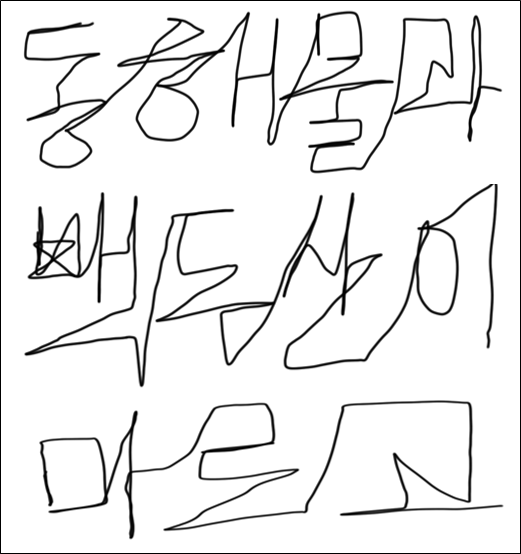 동해물과
백두산이
마르고